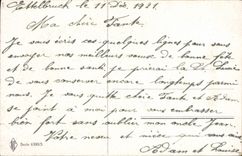 Ettelbruck le 11 Déc. 1921.
Ma chère Tante
Je vous écris ces quelques lignes pour vous
envoyer mes meilleurs voeux de bonne fête
et de bonne santé je prierai la St. Vierge
de vous conserver encore longtemps parmi
nous. Je vous quitte chère Tante et Adam
se joint à moi pour vous embrasser
bien fort sans oublier mon oncle Jean.
Votre neveu et nièce qui vous aime
Adam et Louise
Serie 6308/3